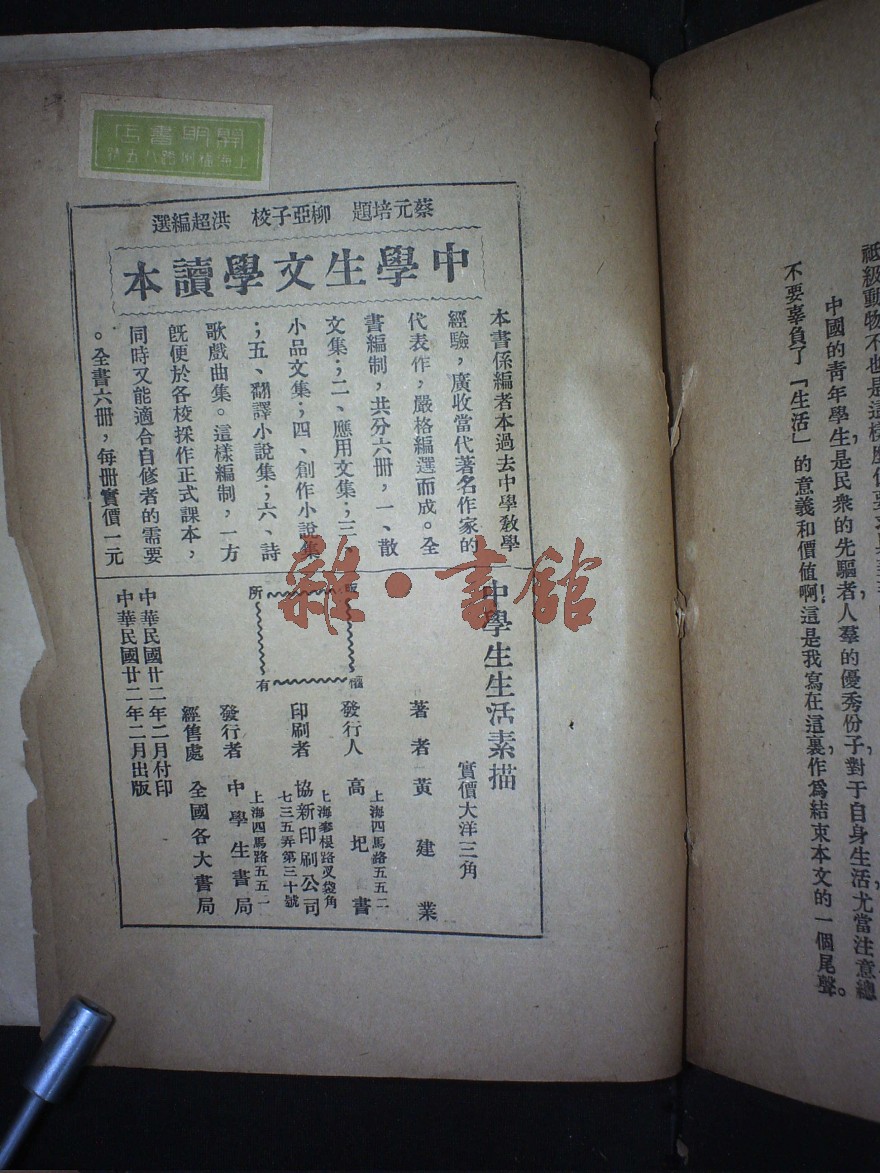 不要辜負了「生活」的意義和價值啊!這是我寫在這裏,作為結束本文的一個尾聲。
中國的青年學生,是民衆的先驅者,人羣的優秀份子,對于自身生活,尤當注意,總
開明書店
蔡元培題 柳亞子校 洪超編選
中學生文學讀本
本書係編者本過去中學教學
經驗,廣收當代著名作家的
代表作,嚴格編選而成。全
書編制,共分六冊,一、散
文集;二、應用文集;三、
小品文集;四、創作小說集
;五、翻譯小說集;六、詩
歌戲曲集。這樣編制,一方
旣便於各校採作正式課本,
同時又能適合自修者的需要
。全書六冊,每冊實價一元
中學生生活素描
實價大洋三角
著者 黃建業
發行人 高圯書
上海四馬路五五二
印刷者 協新印刷公司
上海麥根路叉袋角
七三五弄第三十號
發行者 中學生書局
上海四馬路五五一
經售處 全國各大書局
版權所有
中華民國廿二年二月付印
中華民國廿二年二月出版
雜·書館